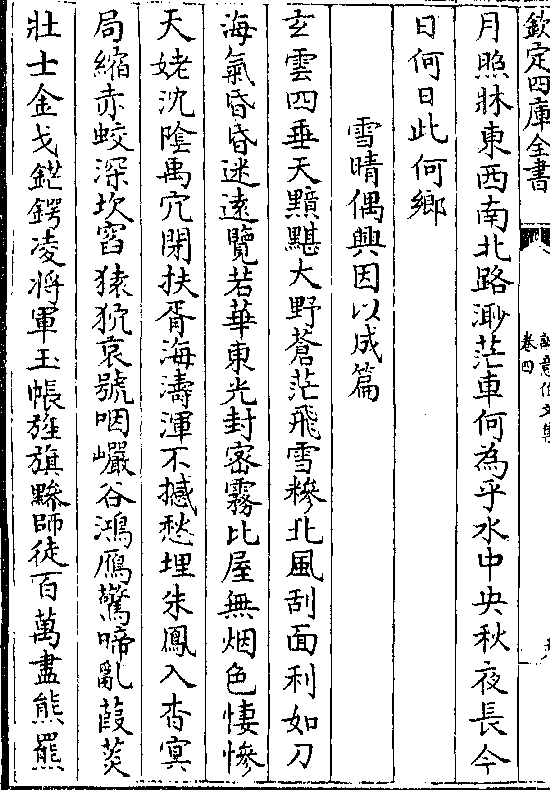 欽定四庫全書
卷四
月照牀東西南北路渺茫車何為乎水中央秋夜長今
日何日此何鄉
雪晴偶興因以成篇
玄雲四垂天黯黮大野蒼茫飛雪糝北風刮面利如刀
海氣昏昏迷遠覽若華東光封密霧比屋無烟色悽慘
天姥沈陰禹穴閉扶胥海濤渾不撼愁埋朱鳳入杳㝠
局縮赤蛟深坎窞猿狖哀號咽巗谷鴻鴈驚啼亂葭菼
壯士金戈鋩鍔凌將軍玉帳旌旗黲師徒百萬盡熊羆